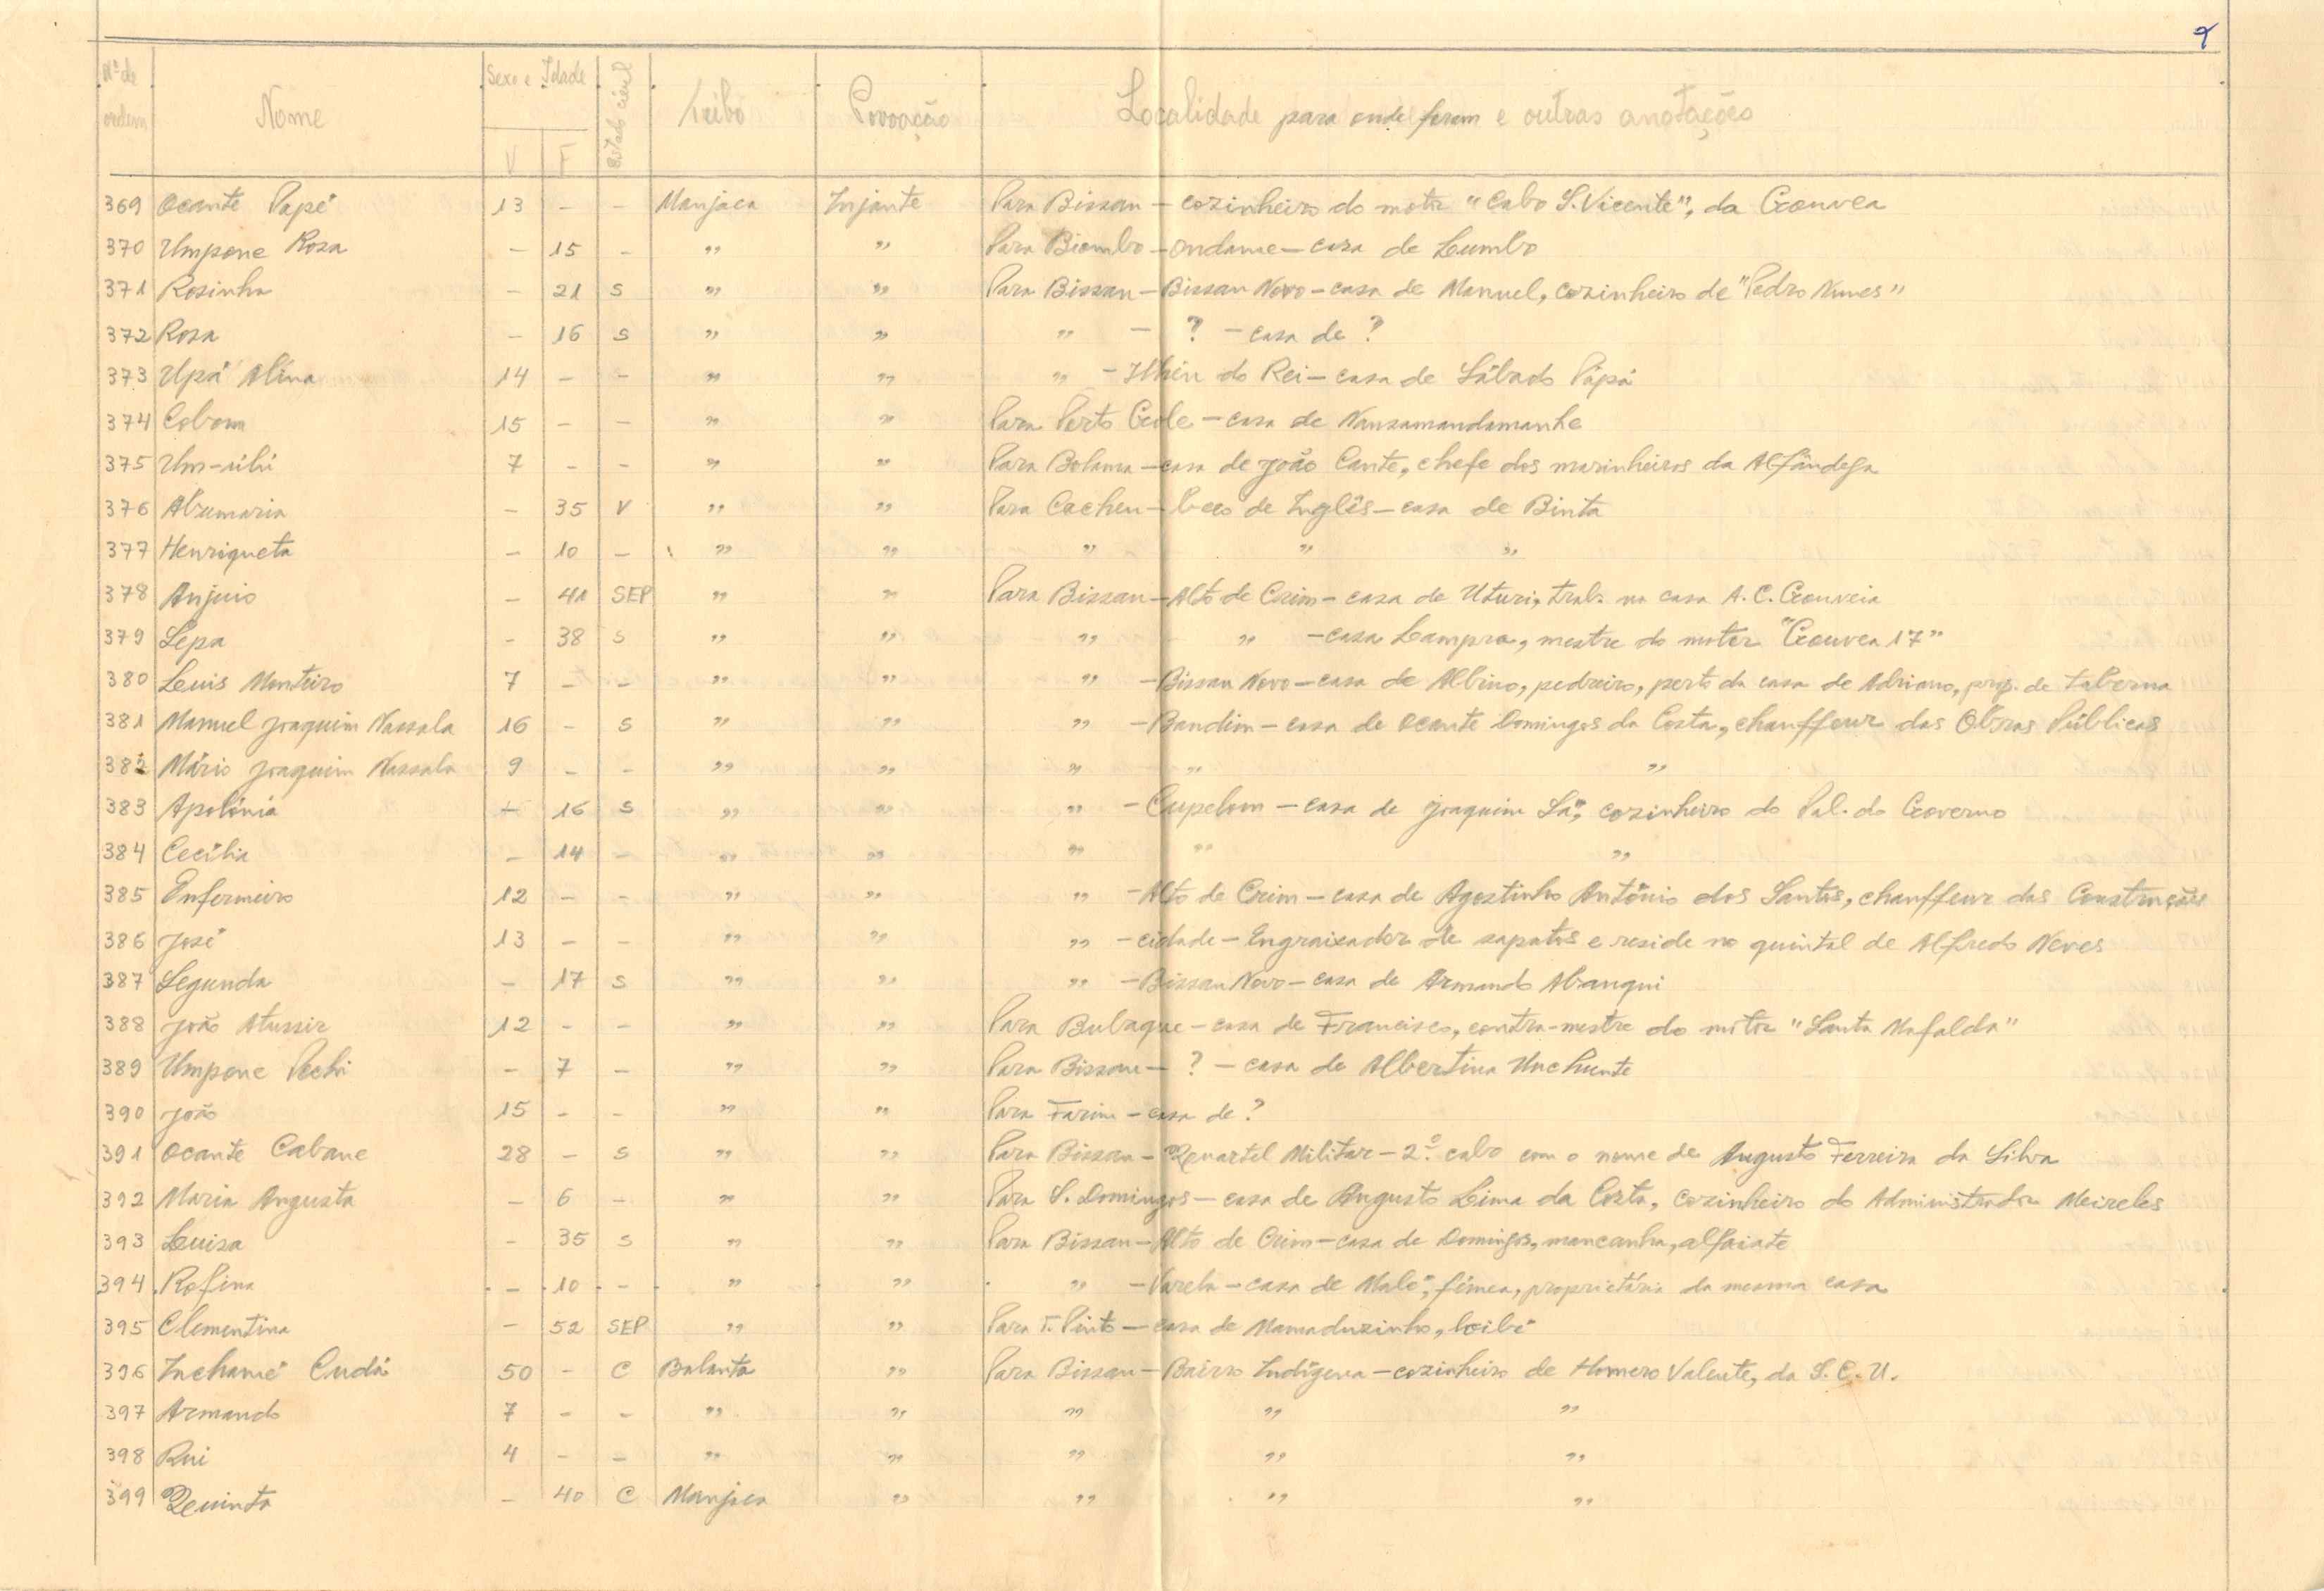 9
Nº de ordem Nome Sexo e Idade V F Estado civil Tribo Povoação Localidade para onde foram e outras anotações
369 Ocante Papé 13 - - Manjaca Injante Para Bissau - cozinheiro do motor "Cabo S. Vicente", da Gouvea
370 Umpone Rosa - 15 - " " Para Biombo - Ondame - casa de Lumbo
371 Rosinha - 21 S " " Para Bissau - Bissau Novo - casa de Manuel, cozinheiro de "Pedro Nunes"
372 Rosa - 16 S " " " - ? - casa de ?
373 Upá Alina 14 - - " " " - Ilhéu do Rei - casa de Sábado Pápá
374 Cobom 15 - - " " Para Porto Gole - casa de Nansamandamanhe
375 Um-úlú 7 - - " " Para Bolama - casa de João Cante, chefe dos marinheiros da Alfândega
376 Abumaria - 35 V " " Para Cacheu - beco de Inglês - casa de Binta
377 Henriqueta - 10 - " " " " "
378 Anjuio - 41 SEP " " Para Bissau - Alto de Crim - casa de Uturi, trab. na casa A. C. Gouveia
379 Sepa - 38 S " " " " - casa Lampra, mestre do motor "Gouvea 17"
380 Luis Monteiro 7 - - " " " - Bissau Novo - casa de Albino, pedreiro, perto da casa de Adriano, prop. de taberna
381 Manuel Joaquim Nassala 16 - S " " " - Bandim - casa de Ocante Domingos da Costa, chauffeur das Obras Públicas
382 Mário Joaquim Nassala 9 - - " " " " "
383 Apolónia - 16 S " " " - Cupelom - casa de Joaquim Sá, cozinheiro do Pal. do Governo
384 Cecília - 14 - " " " " "
385 Enfermeiro 12 - - " " " - Alto de Crim - casa de Agostinho António dos Santos, chauffeur das Construções
386 José 13 - - " " " - cidade - Engraixador de sapatos e reside no quintal de Alfredo Neves
387 Segunda - 17 S " " " - Bissau Novo - casa de Armando Abangui
388 João Atussir 12 - - " " Para Bubaque - casa de Francisco, contra-mestre do motor "Santa Mafalda"
389 Umpone Pechi - 7 - " " Para Bissau - ? - casa de Albertina Unchunte
390 João 15 - - " " Para Farim - casa de ?
391 Ocante Cabane 28 - S " " Para Bissau - Quartel Militar - 2º cabo com o nome de Augusto Ferreira da Silva
392 Maria Augusta - 6 - " " Para S. Domingos - casa de Augusto Lima da Costa, cozinheiro do Administrador Meireles
393 Luisa - 35 S " " Para Bissau - Alto de Crim - casa de Domingos, mancanha, alfaiate
394 Rofina - 10 - " " " - Varela - casa de Malé, fêmea, proprietária da mesma casa
395 Clementina - 52 SEP " " Para T. Pinto - casa de Mamaduzinho, loibé
396 Inchamé Cudá 50 - C Balanta " Para Bissau - Bairro Indígena - cozinheiro de Homero Valente, da S. C. U.
397 Armando 7 - - " " " " "
398 Rui 4 - - " " " " "
399 Quinta - 40 C Manjaca " " " "